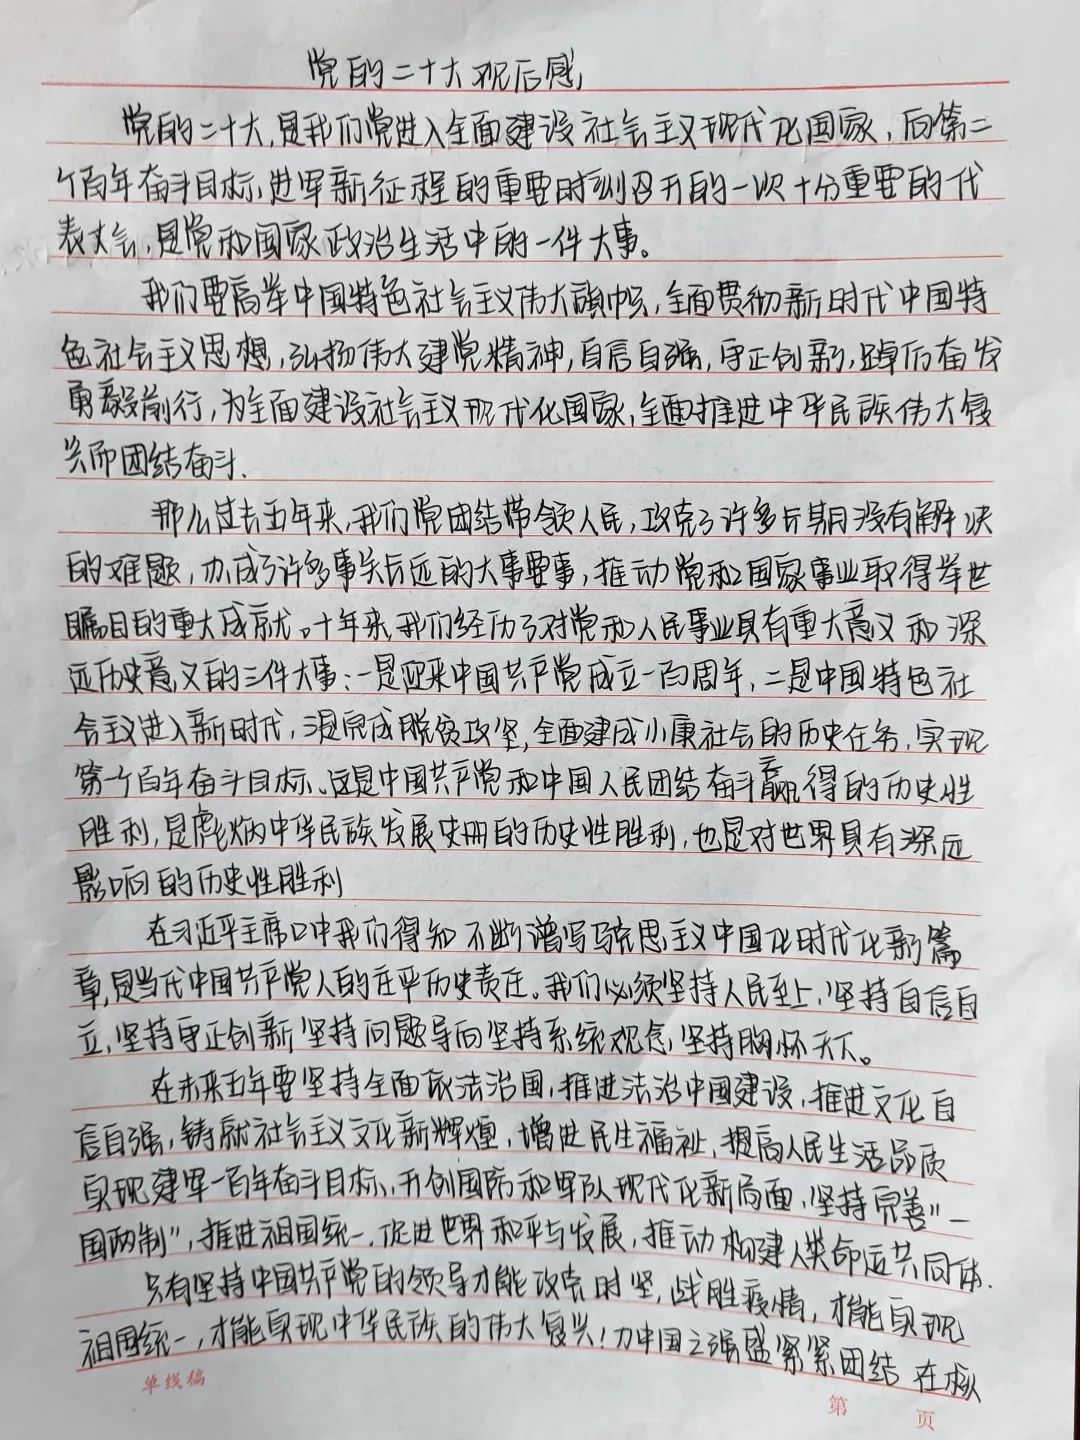 党的二十大观后感
党的二十大,是我们党进入全面建设社会主义现代化国家,向第二
个百年奋斗目标,进军新征程的重要时刻召开的一次十分重要的代
表大会,是党和国家政治生活中的一件大事。
我们要高举中国特色社会主义伟大旗帜,全面贯彻新时代中国特
色社会主义思想,弘扬伟大建党精神,自信自强,守正创新,踔厉奋发
勇毅前行,为全面建设社会主义现代化国家,全面推进中华民族伟大复
兴而团结奋斗.
那么过去五年来,我们党团结带领人民,攻克了许多长期没有解决
的难题,办成了许多事关长远的大事要事,推动党和国家事业取得举世
瞩目的重大成就。十年来,我们经历了对党和人民事业具有重大意义和深
远历史意义的三件大事:一是迎来中国共产党成立一百周年,二是中国特色社
会主义进入新时代,三是完成脱贫攻坚,全面建成小康社会的历史任务,实现
第一个百年奋斗目标、这是中国共产党和中国人民团结奋斗赢得的历史性
胜利,是彪炳中华民族发展史册的历史性胜利,也是对世界具有深远
影响的历史性胜利
在习近平主席口中我们得知不断谱写马克思主义中国化时代化新篇
章,是当代中国共产党人的庄严历史责任。我们必须坚持人民至上,坚持自信自
立,坚持守正创新坚持问题导向坚持系统观念,坚持胸怀天下。
在未来五年要坚持全面依法治国,推进法治中国建设,推进文化自
信自强,铸就社会主义文化新辉煌,增进民生福祉,提高人民生活品质
实现建军一百年奋斗目标,开创国防和军队现代化新局面,坚持完善"一
国两制",推进祖国统一,促进世界和平与发展,推动构建人类命运共同体.
只有坚持中国共产党的领导才能攻克时坚,战胜疫情,才能实现
祖国统一,才能实现中华民族的伟大复兴!力中国之强盛紧紧团结 在核
单线稿
第 页